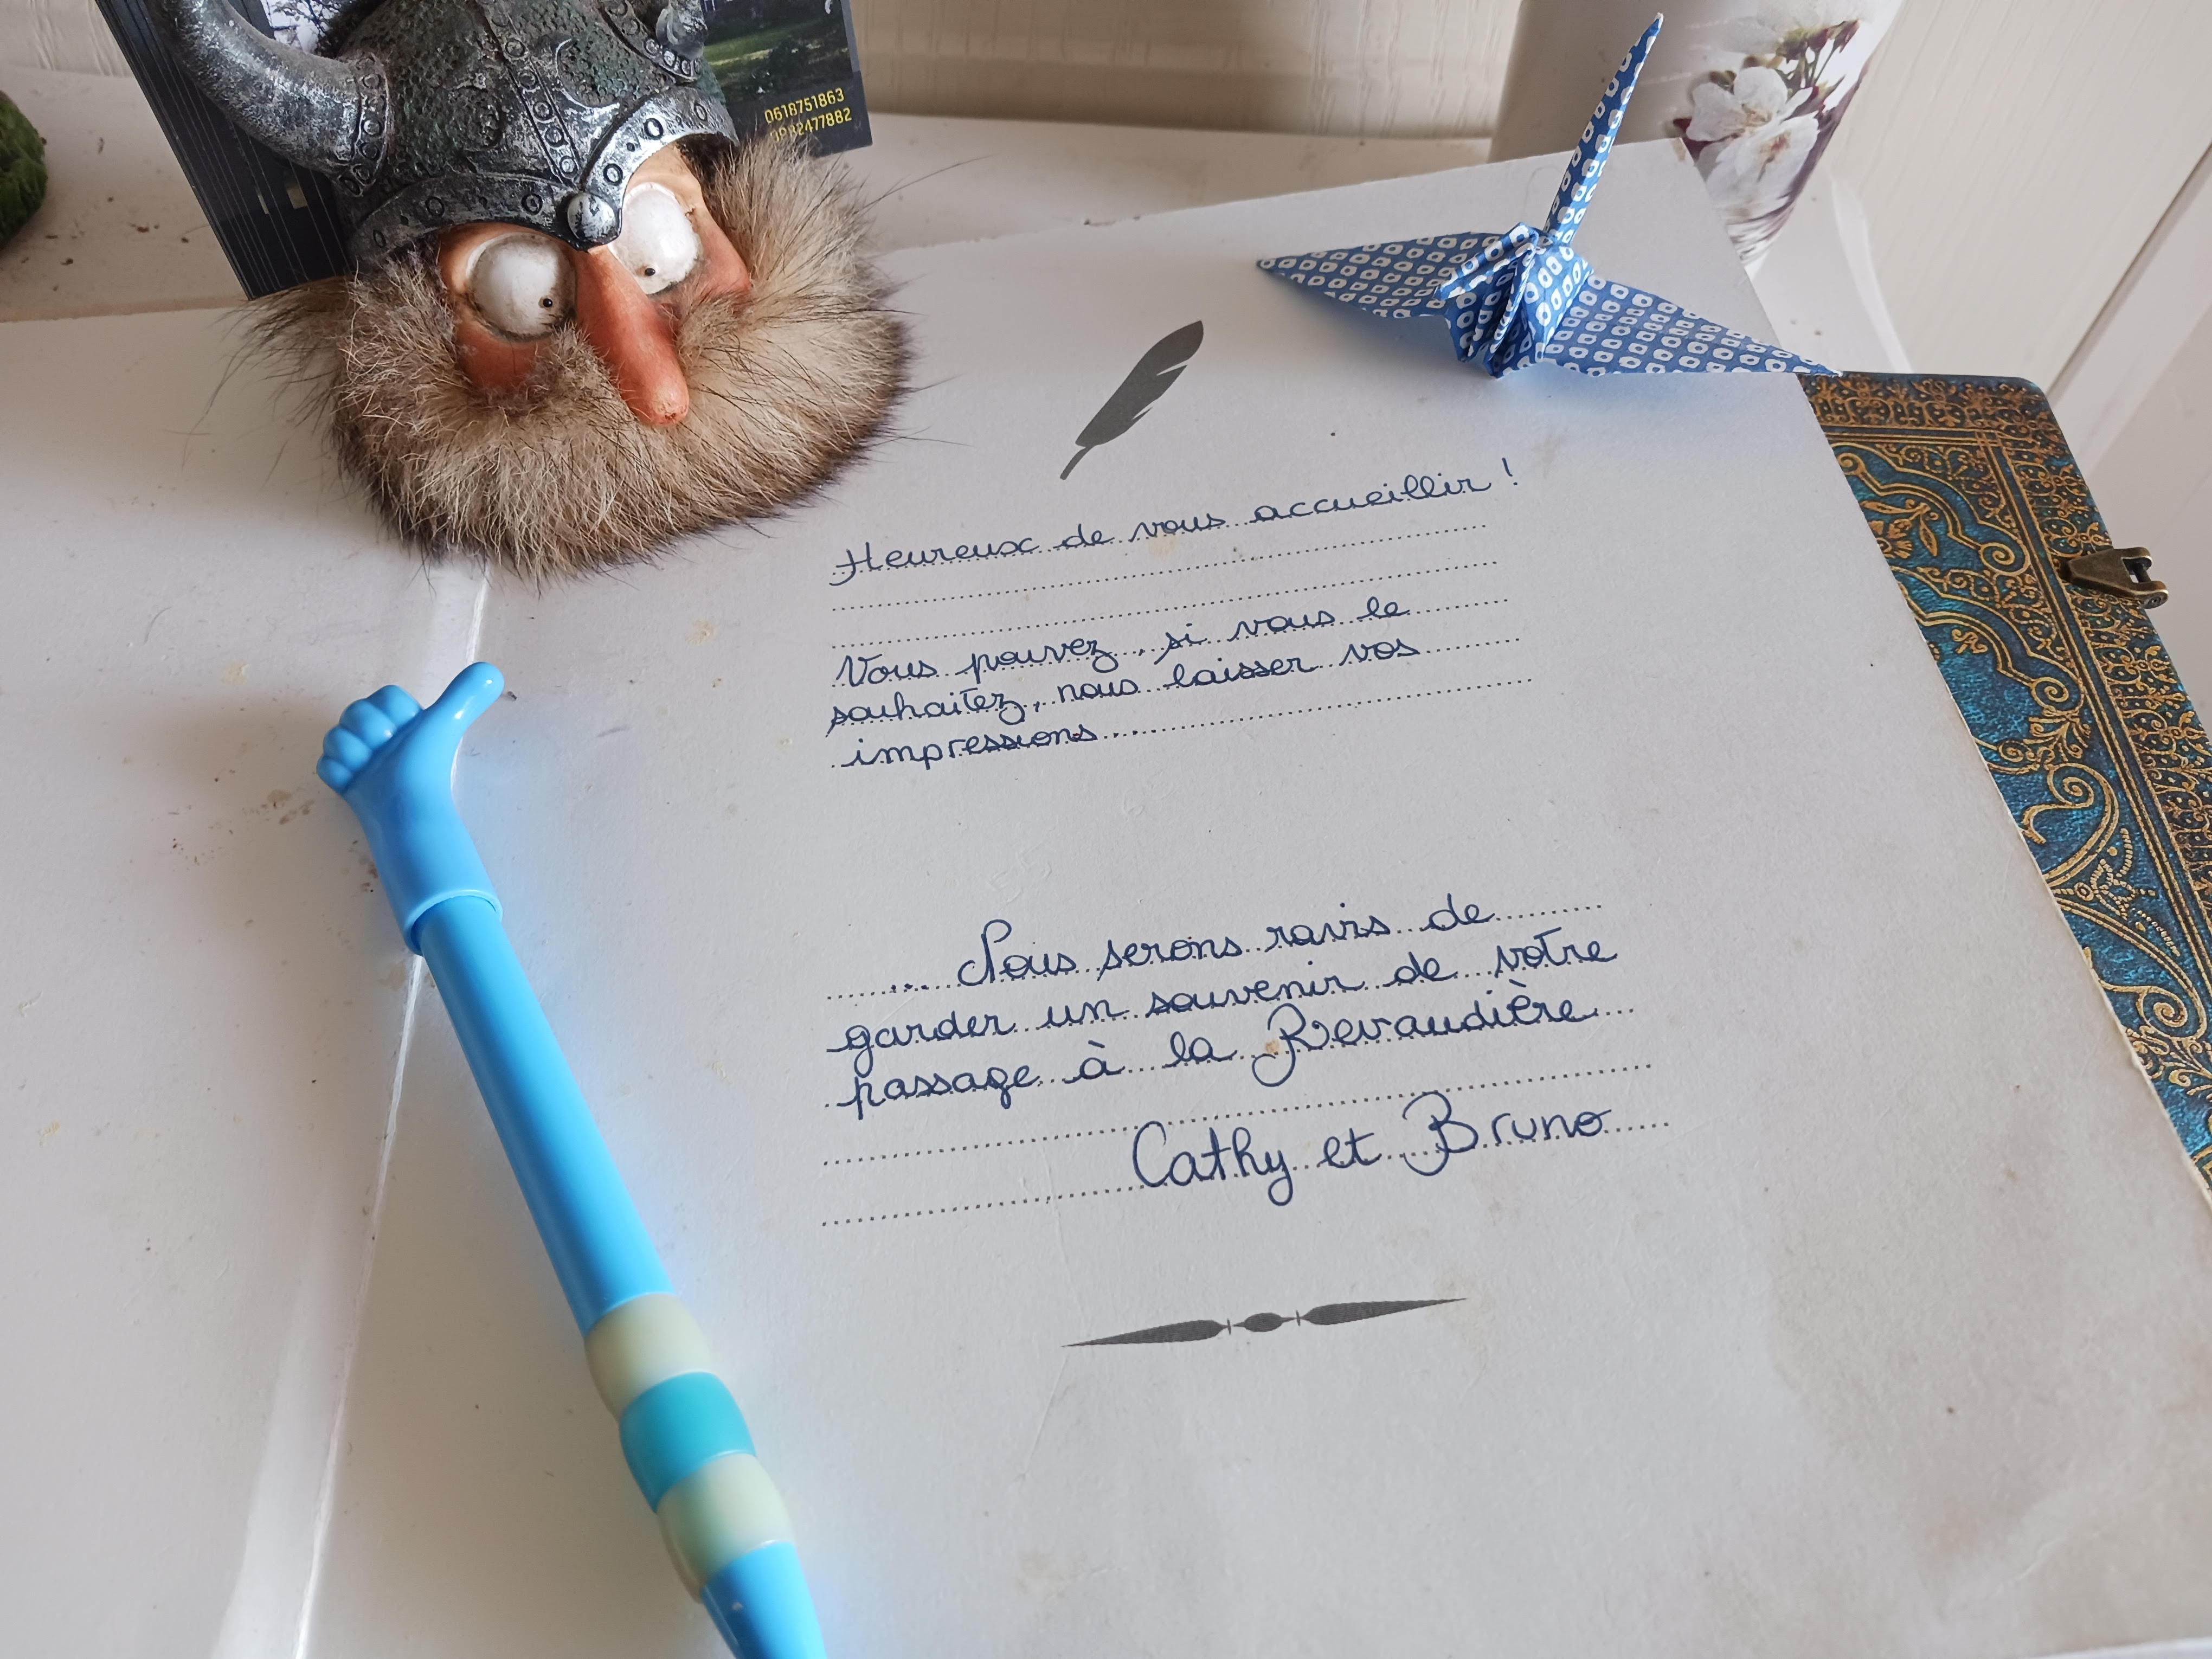 0618751863
0982477882
Heureux de vous accueillir !
Vous pouvez, si vous le
souhaitez, nous laisser vos
impressions.....
... Nous serons ravis de
garder un souvenir de votre
passage à la Revaudière
Cathy et Bruno